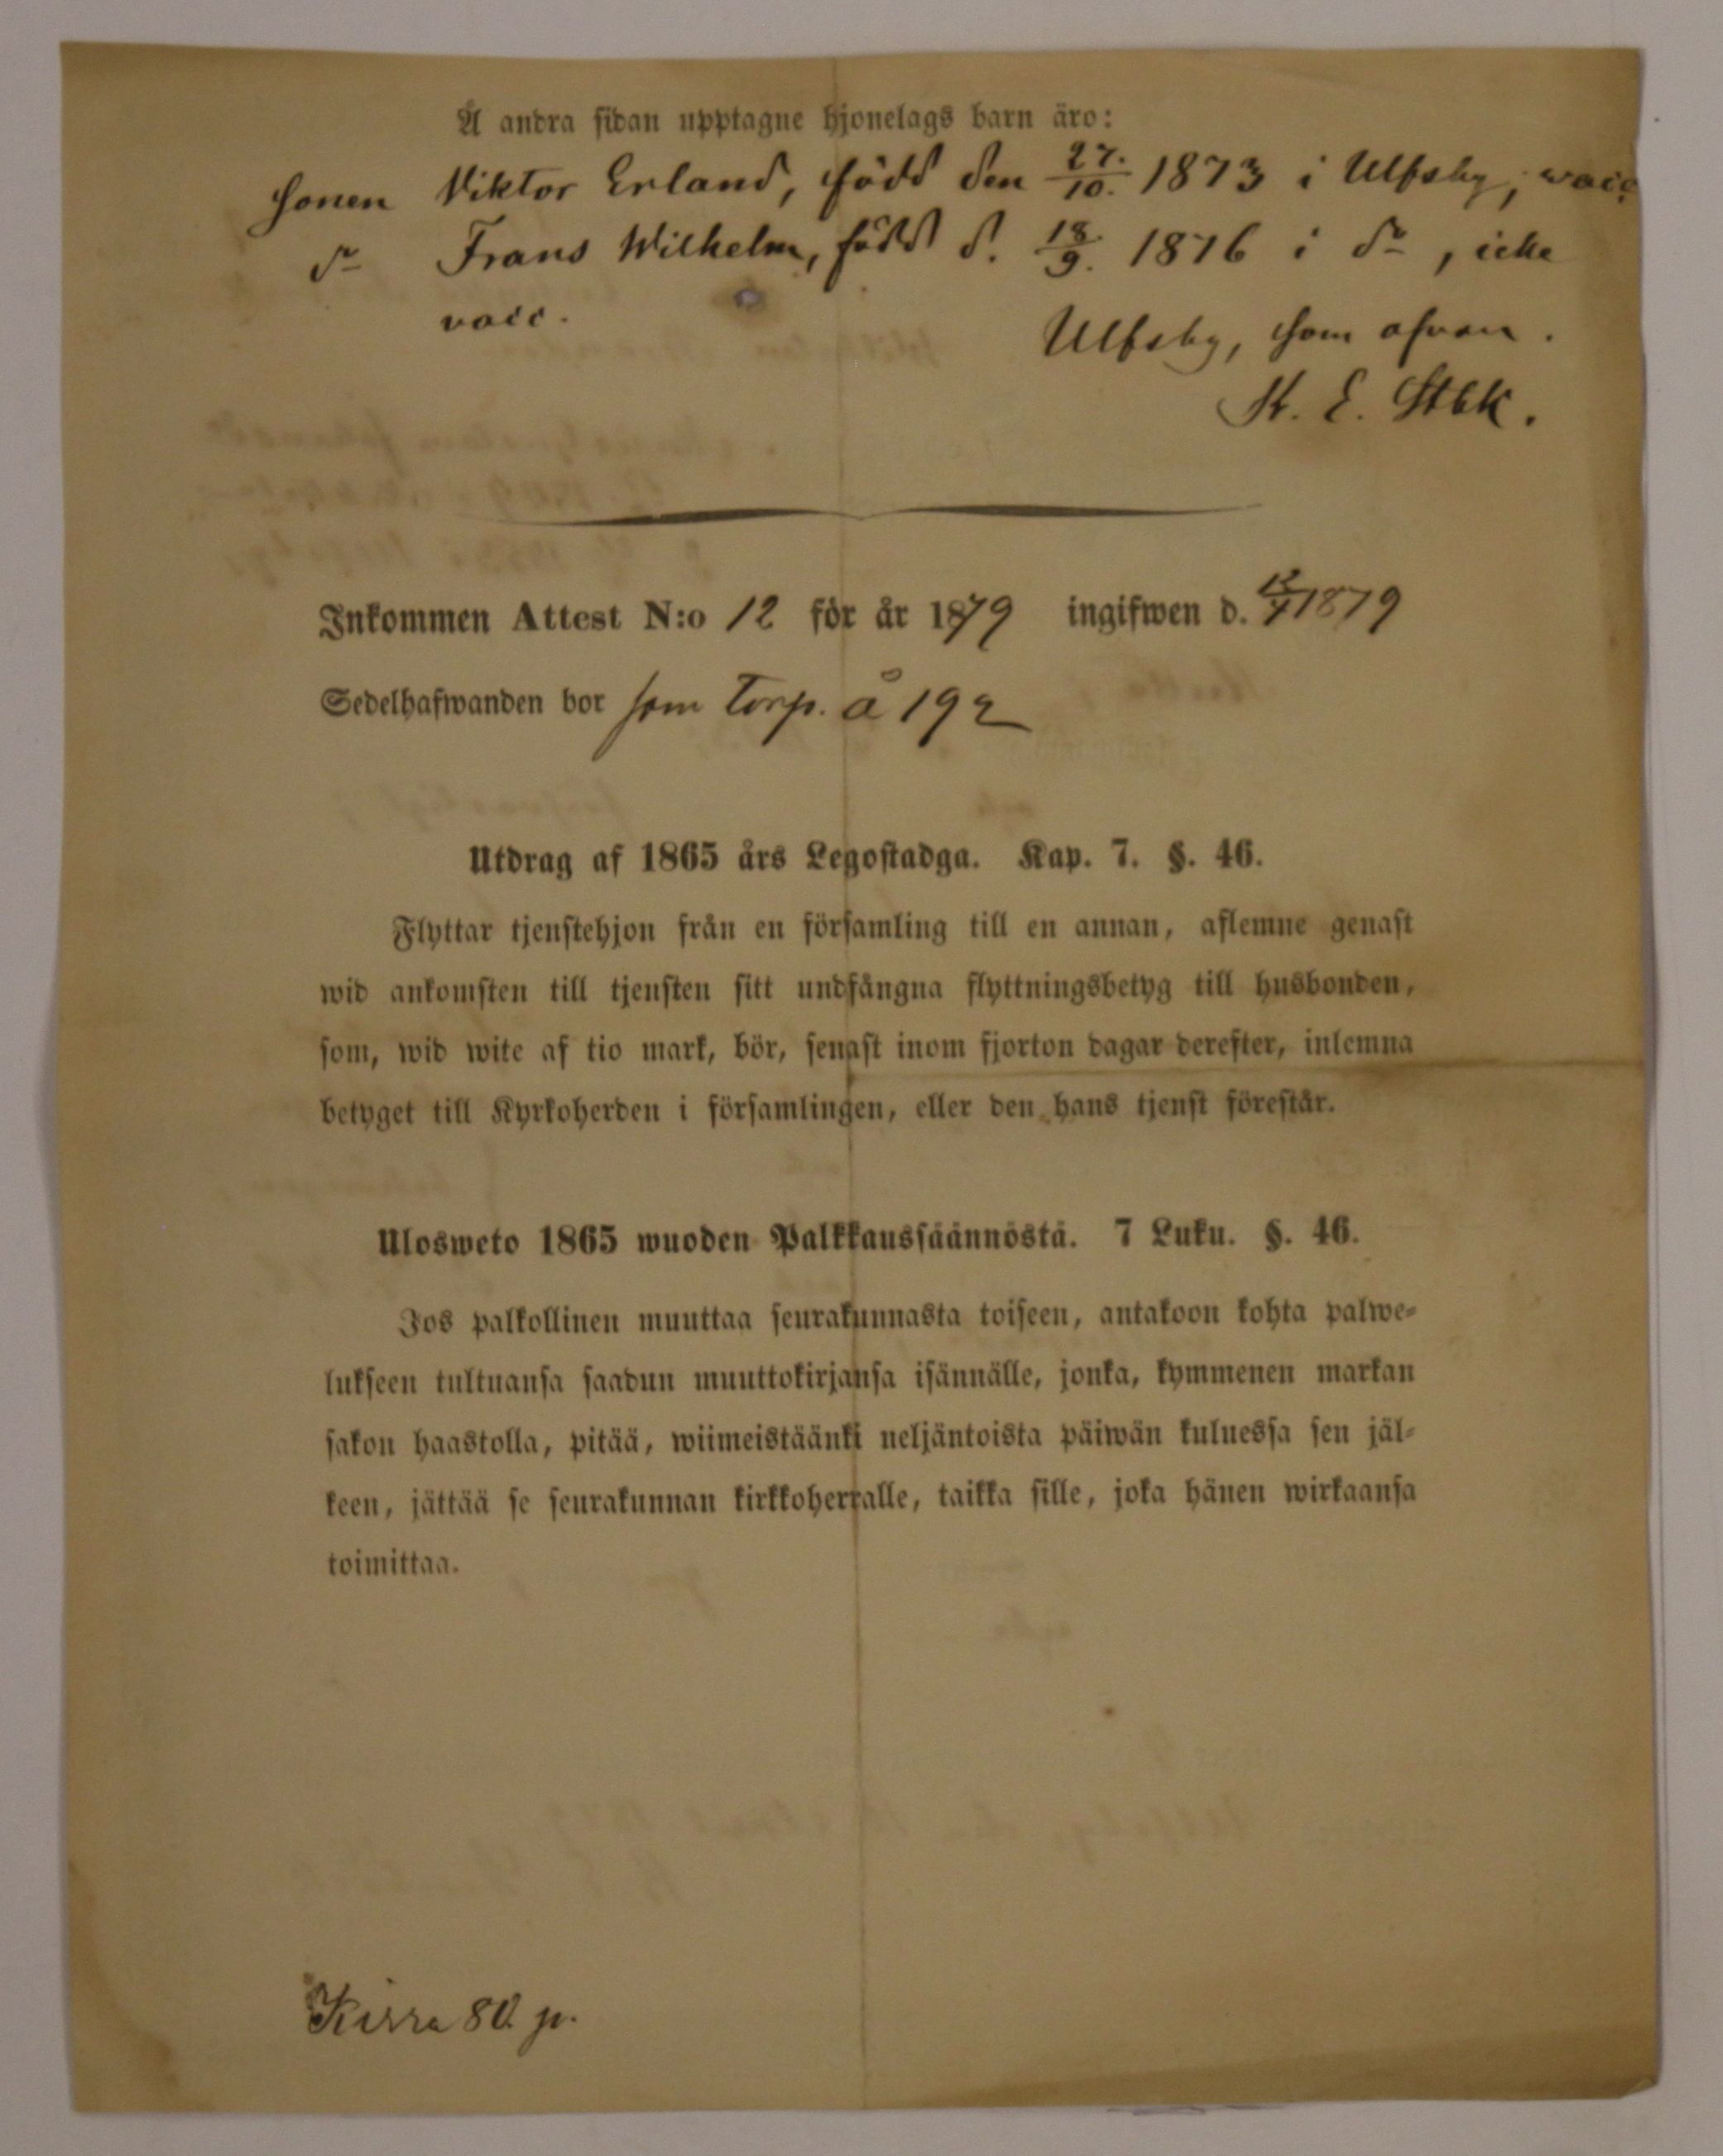 Å andra sidan upptagne hjonelags barn äro:
Sonen Viktor Erland, född den 27./10. 1873 i Ulfsby, vacc.
do Frans Wilhelm, född d. 18./9. 1876 i do, icke
vacc.
Ulfsby, som ofvan.
K. E. Stbk.
Inkommen Attest N:o 12 för år 1879 ingifwen d. 1879
Sedelhafwanden bor som torp. å 192
Utdrag af 1865 års Legostadga. Kap. 7. §. 46.
Flyttar tjenstehjon från en församling till en annan, aflemne genast
wid ankomsten till tjensten sitt undfångna flyttningsbetyg till husbonden,
som, wid wite af tio mark, bör, senast inom fjorton dagar derefter, inlemna
betyget till Kyrkoherden i församlingen, eller den hans tjenst förestår.
Ulosweto 1865 wuoden Palkkaussäännöstä. 7 Luku. §. 46.
Jos palkollinen muuttaa seurakunnasta toiseen, antakoon kohta palwe-
lukseen tultuansa saadun muuttokirjansa isännälle, jonka, kymmenen markan
sakon haastolla, pitää, wiimeistäänki neljäntoista päiwän kuluessa sen jäl-
keen, jättää se seurakunnan kirkkoherralle, taikka sille, joka hänen wirkaansa
toimittaa.
80. p.